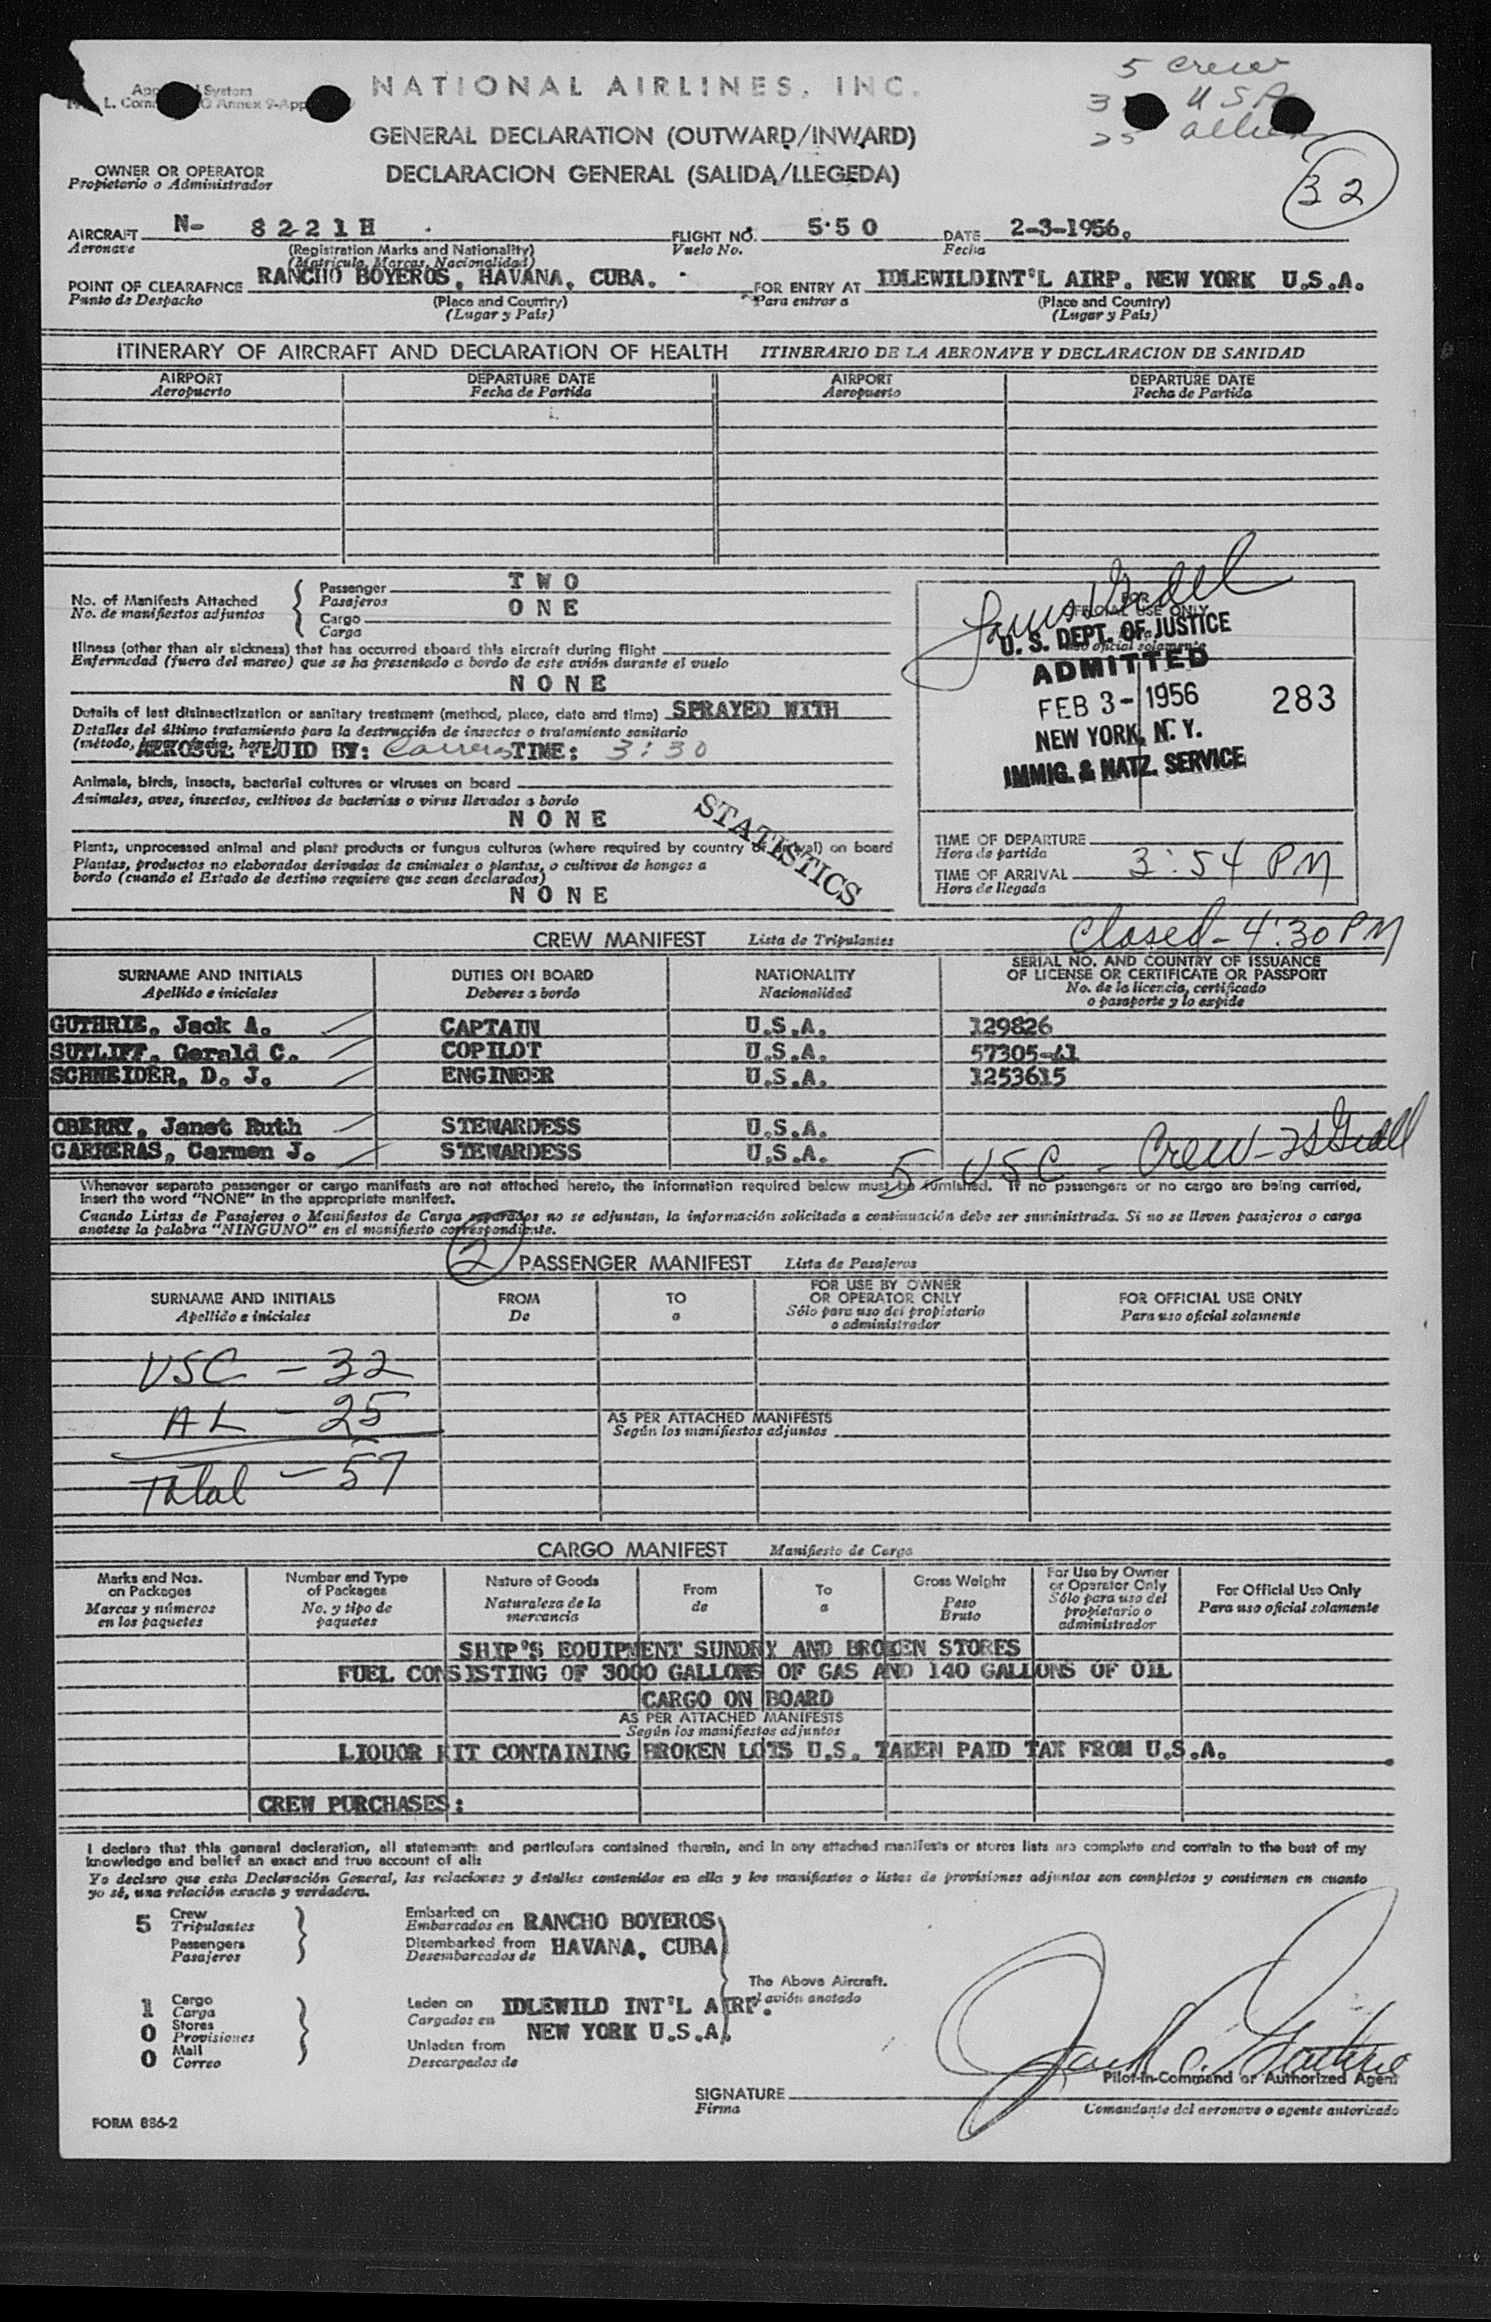 NATIONAL AIRLINES, INC.
5 crew
USA
25
GENERAL DECLARATION (OUTWARD/INWARD)
DECLARACION GENERAL (SALIDA/LLEGEDA)
32
OWNER OR OPERATOR
Propietario o Administrador
AIRCRAFT N- 8221H FLIGHT NO. 550 DATE 2-3-1956.
Aeronave (Registration Marks and Nationality) Vuelo No. Fecha
(Matrícula, Marcas, Nacionalidad)
POINT OF CLEARAFNCE RANCHO BOYEROS, HAVANA, CUBA. FOR ENTRY AT IDLEWILDINT'L AIRP. NEW YORK U.S.A.
Punto de Despacho (Place and Country) Para entrar a (Place and Country)
(Lugar y País) (Lugar y País)
ITINERARY OF AIRCRAFT AND DECLARATION OF HEALTH ITINERARIO DE LA AERONAVE Y DECLARACION DE SANIDAD
AIRPORT DEPARTURE DATE AIRPORT DEPARTURE DATE
Aeropuerto Fecha de Partida Aeropuerto Fecha de Partida
No. of Manifests Attached
No. de manifiestos adjuntos
Passenger TWO
Pasajeros
Cargo ONE
Carga
Illness (other than air sickness) that has occurred aboard this aircraft during flight
Enfermedad (fuera del mareo) que se ha presentado a bordo de este avión durante el vuelo
NONE
Details of last disinsectization or sanitary treatment (method, place, date and time) SPRAYED WITH
Detalles del último tratamiento para la destrucción de insectos o tratamiento sanitario
(método, lugar, fecha, hora)
AEROSOL FLUID BY: Carreras TIME: 3:30
Animals, birds, insects, bacterial cultures or viruses on board
Animales, aves, insectos, cultivos de bacterias o virus llevados a bordo
NONE
Plants, unprocessed animal and plant products or fungus cultures (where required by country of arrival) on board
Plantas, productos no elaborados derivados de animales o plantas, o cultivos de hongos a
bordo (cuando el Estado de destino requiere que sean declarados)
NONE
STATISTICS
FOR
OFFICIAL USE ONLY
uso oficial solamente
U. S. DEPT. OF JUSTICE
ADMITTED
FEB 3- 1956 283
NEW YORK, N. Y.
IMMIG. & NATZ. SERVICE
TIME OF DEPARTURE
Hora de partida
TIME OF ARRIVAL 3:54 PM
Hora de llegada
Closed - 4:30 PM
CREW MANIFEST Lista de Tripulantes
SURNAME AND INITIALS DUTIES ON BOARD NATIONALITY SERIAL NO. AND COUNTRY OF ISSUANCE
OF LICENSE OR CERTIFICATE OR PASSPORT
Apellido e iniciales Deberes a bordo Nacionalidad No. de la licencia, certificado
o pasaporte y lo expide
GUTHRIE, Jack A. CAPTAIN U.S.A. 129826
SUTLIFF, Gerald C. COPILOT U.S.A. 57305-41
SCHNEIDER, D. J. ENGINEER U.S.A. 1253615
OBERRY, Janet Ruth STEWARDESS U.S.A.
CARRERAS, Carmen J. STEWARDESS U.S.A.
5 USC - Crew
Whenever separate passenger or cargo manifests are not attached hereto, the information required below must be furnished. If no passengers or no cargo are being carried,
insert the word "NONE" in the appropriate manifest.
Cuando Listas de Pasajeros o Manifiestos de Carga separados no se adjuntan, la información solicitada a continuación debe ser suministrada. Si no se lleven pasajeros o carga
anotese la palabra "NINGUNO" en el manifiesto correspondiente.
2 PASSENGER MANIFEST Lista de Pasajeros
SURNAME AND INITIALS FROM TO FOR USE BY OWNER
OR OPERATOR ONLY FOR OFFICIAL USE ONLY
Apellido e iniciales De a Sólo para uso del propietario
o administrador Para uso oficial solamente
USC - 32
AL - 25
Total - 57
AS PER ATTACHED MANIFESTS
Según los manifiestos adjuntos
CARGO MANIFEST Manifiesto de Carga
Marks and Nos.
on Packages
Marcas y números
en los paquetes
Number and Type
of Packages
No. y tipo de
paquetes
Nature of Goods
Naturaleza de la
mercancia
From
de
To
a
Gross Weight
Peso
Bruto
For Use by Owner
or Operator Only
Sólo para uso del
propietario o
administrador
For Official Use Only
Para uso oficial solamente
SHIP'S EQUIPMENT SUNDRY AND BROKEN STORES
FUEL CONSISTING OF 3000 GALLONS OF GAS AND 140 GALLONS OF OIL
CARGO ON BOARD
AS PER ATTACHED MANIFESTS
Según los manifiestos adjuntos
LIQUOR KIT CONTAINING BROKEN LOTS U.S. TAKEN PAID TAX FROM U.S.A.
CREW PURCHASES:
I declare that this general declaration, all statements and particulars contained therein, and in any attached manifests or stores lists are complete and contain to the best of my
knowledge and belief an exact and true account of all:
Yo declaro que esta Declaración General, las relaciones y detalles contenidos en ella y los manifiestos o listas de provisiones adjuntos son completos y contienen en cuanto
yo sé, una relación exacta y verdadera.
5 Crew
Tripulantes
Passengers
Pasajeros
Embarked on
Embarcados en RANCHO BOYEROS
Disembarked from HAVANA, CUBA
Desembarcados de
The Above Aircraft.
avión anotado
1 Cargo
Carga
0 Stores
Provisiones
0 Mail
Correo
Laden on IDLEWILD INT'L AIRP.
Cargados en
NEW YORK U.S.A.
Unladen from
Descargados de
Pilot-in-Command or Authorized Agent
SIGNATURE
Firma Comandante del aeronave o agente autorizado
FORM 886-2